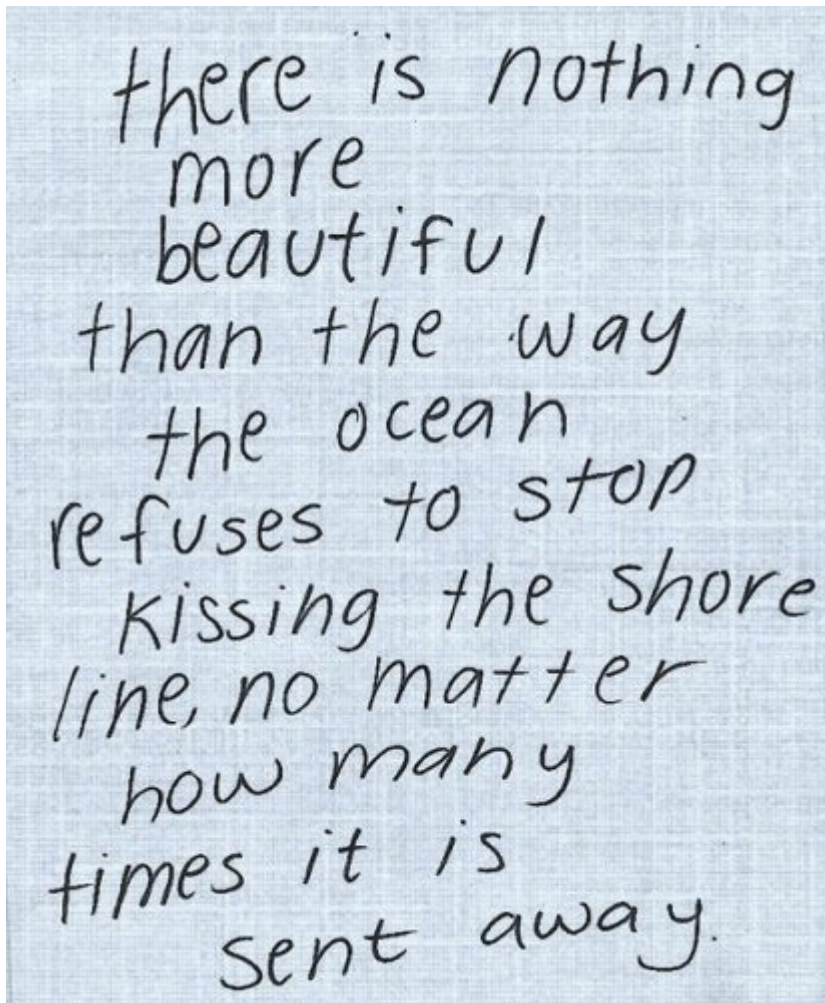 there is nothing
more
beautiful
than the way
the ocean
refuses to stop
kissing the shore
line, no matter
how many
times it is
sent away.